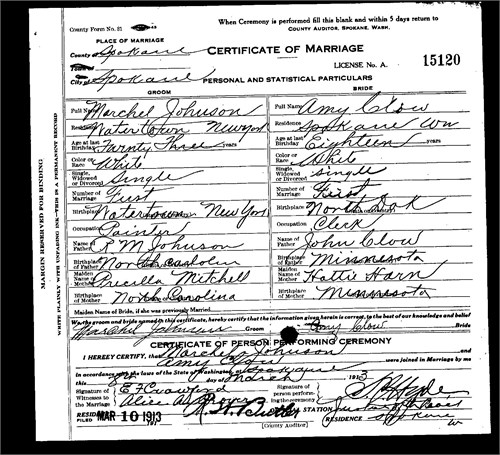 When Ceremony is performed fill this blank and within 5 days return to
COUNTY AUDITOR, SPOKANE, WASH.
County Form No. 31
PLACE OF MARRIAGE
County of Spokane
CERTIFICATE OF MARRIAGE
LICENSE No. A. 15120
City of Spokane
PERSONAL AND STATISTICAL PARTICULARS
GROOM BRIDE
Full Name Marchel Johnson Full Name Amy Clow
Residence Watertown New York Residence Spokane Wn
Age at last Birthday Twenty Three years Age at last Birthday Eighteen years
Color or Race White Color or Race White
Single, Widowed or Divorced Single Single, Widowed or Divorced Single
Number of Marriage First Number of Marriage First
Birthplace Watertown New York Birthplace North Dak
Occupation Painter Occupation Clerk
Name of Father R M Johnson Name of Father John Clow
Birthplace of Father North Carolin Birthplace of Father Minnesota
Maiden Name of Mother Priscilla Mitchell Maiden Name of Mother Hattie Harn
Birthplace of Mother North Carolina Birthplace of Mother Minnesota
Maiden Name of Bride, if she was previously Married
We the groom and bride named in this certificate, hereby certify that the information given herein is correct, to the best of our knowledge and belief
Marchel Johnson Groom Amy Clow Bride
CERTIFICATE OF PERSON PERFORMING CEREMONY
I HEREBY CERTIFY, that Marchel Johnson
Amy Clow were joined in Marriage by me
in accordance with the laws of the State of Washington, at Spokane
this day of March 1913
Signature of Witnesses to the Marriage
Signature of person performing the ceremony Hyde
STATION Justice of Peace
RESIDENCE Spokane
FILED MAR 10 1913
(County Auditor)
MARGIN RESERVED FOR BINDING
WRITE PLAINLY WITH UNFADING INK—THIS IS A PERMANENT RECORD